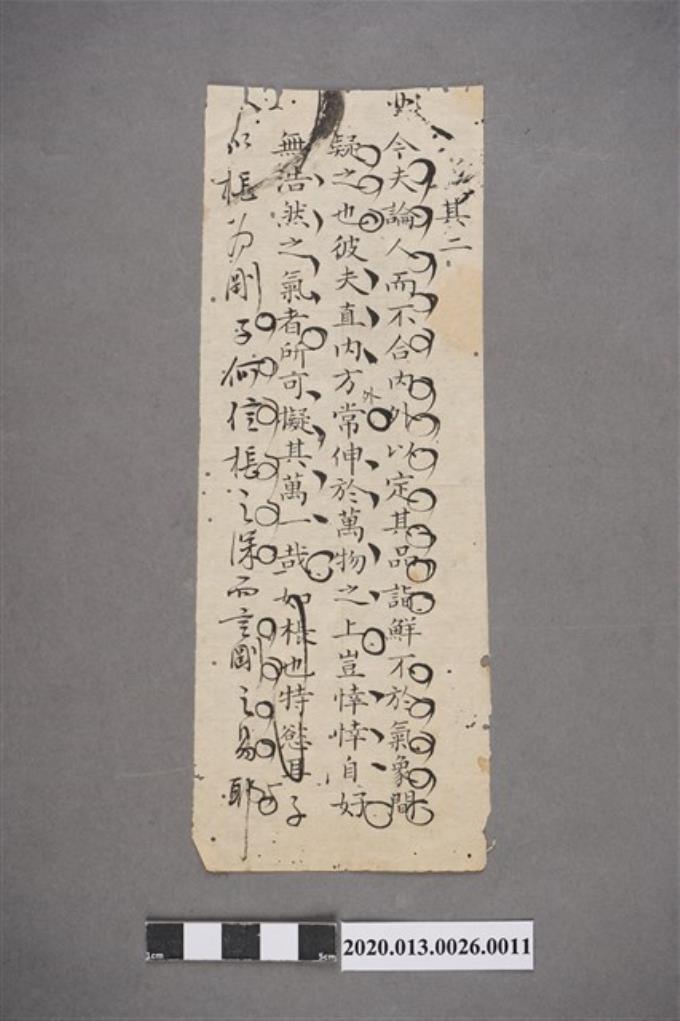 其二
今夫論人而不合內外以定其品詣鮮不於氣象間
疑之也彼夫直內方常伸於萬物之上豈悻悻自好
外
無浩然之氣者所可擬其萬一哉如棖也特慾耳子
以棖為剛子何信棖之深而言剛之易耶
1cm
5cm
2020.013.0026.0011